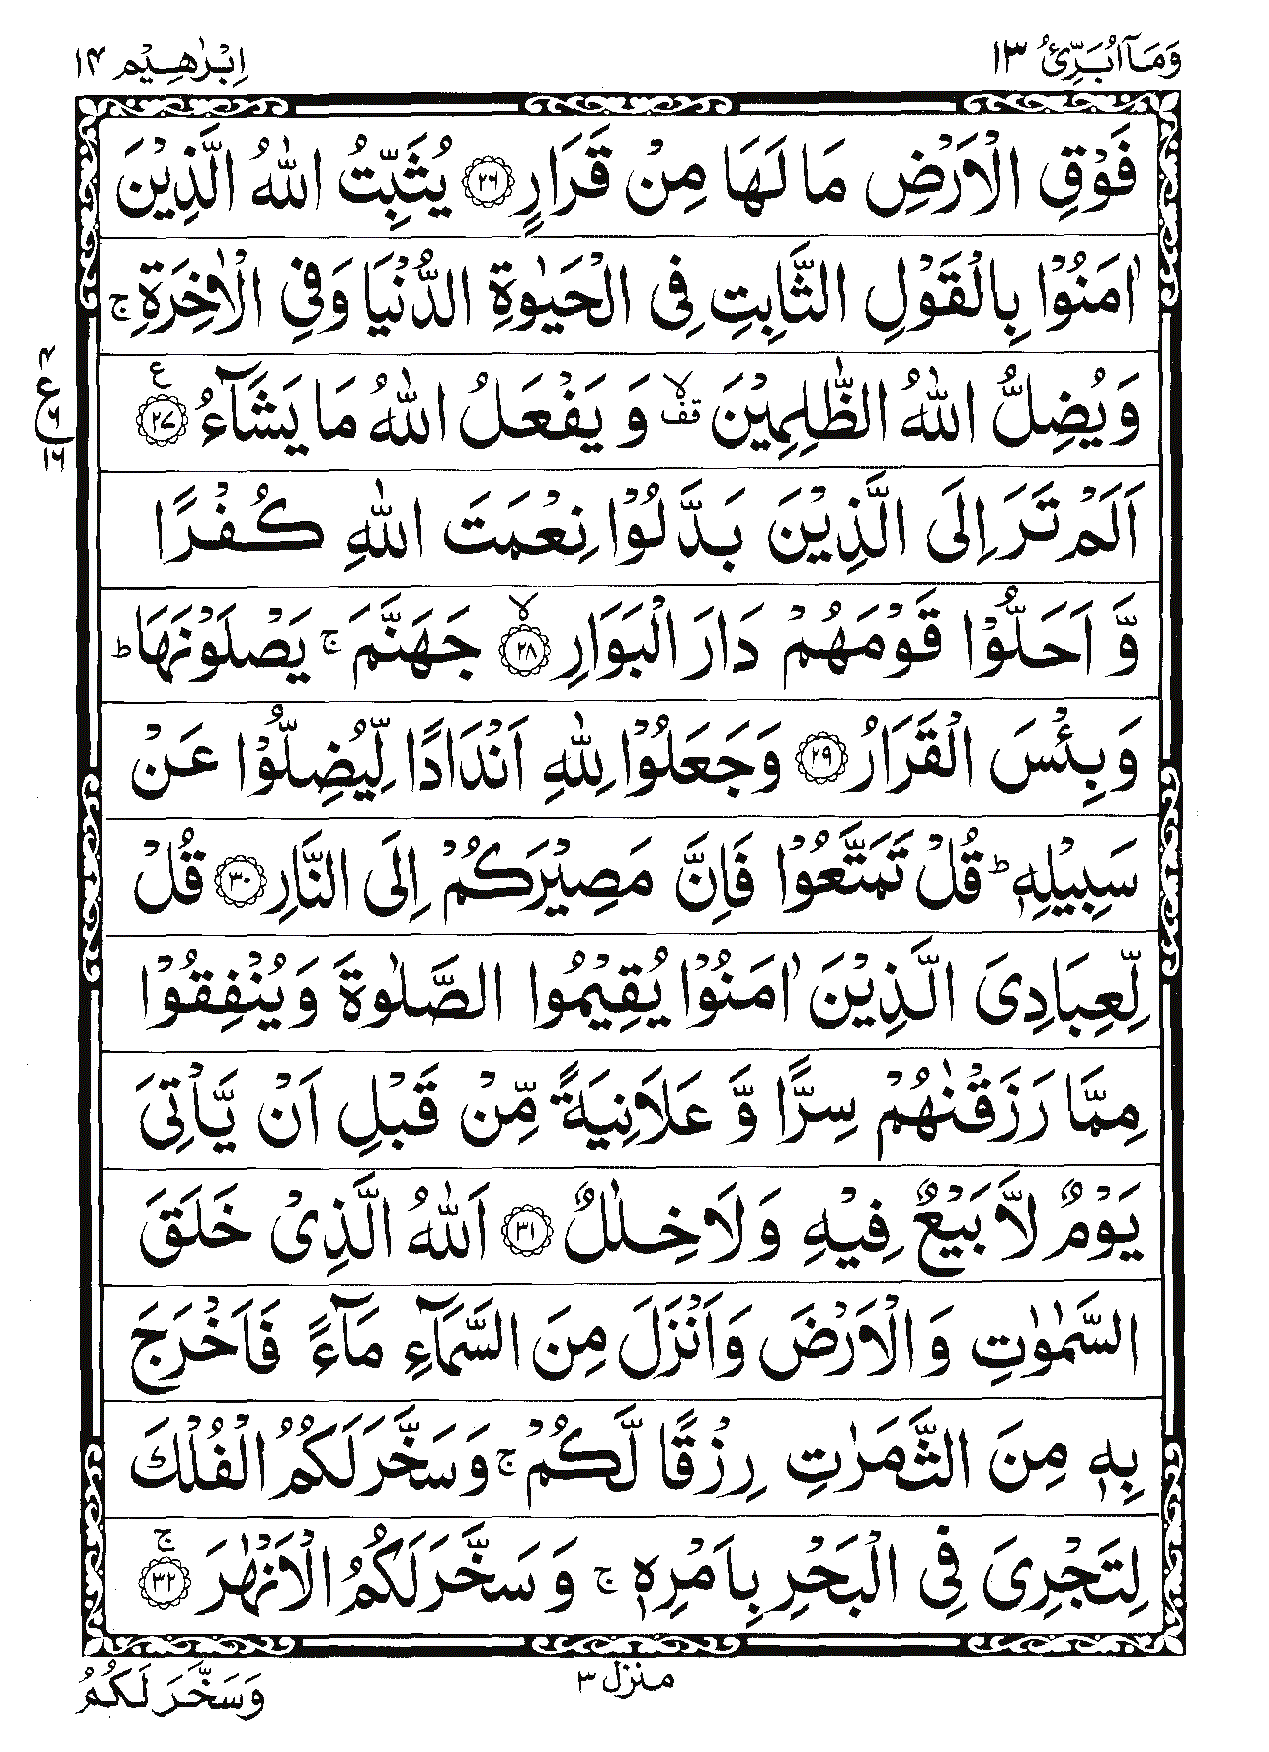 وَمَاۤ اُبَرِّئُ ١٣
اِبْرٰهِیْم ١٤
فَوْقِ الْاَرْضِ مَا لَهَا مِنْ قَرَارٍ ﴿٢٦﴾ یُثَبِّتُ اللّٰهُ الَّذِیْنَ
اٰمَنُوْا بِالْقَوْلِ الثَّابِتِ فِی الْحَیٰوةِ الدُّنْیَا وَفِی الْاٰخِرَةِ ۚ
وَیُضِلُّ اللّٰهُ الظّٰلِمِیْنَ لا قف وَ یَفْعَلُ اللّٰهُ مَا یَشَآءُ ﴿٢٧﴾ ع
٤
ع
٦
١٦
اَلَمْ تَرَ اِلَی الَّذِیْنَ بَدَّلُوْا نِعْمَتَ اللّٰهِ كُفْرًا
وَّ اَحَلُّوْا قَوْمَهُمْ دَارَ الْبَوَارِ ﴿٢٨﴾ ۙ جَهَنَّمَ ۚ یَصْلَوْنَهَا ؕ
وَ بِئْسَ الْقَرَارُ ﴿٢٩﴾ وَجَعَلُوْا لِلّٰهِ اَنْدَادًا لِّیُضِلُّوْا عَنْ
سَبِیْلِهٖ ؕ قُلْ تَمَتَّعُوْا فَاِنَّ مَصِیْرَكُمْ اِلَی النَّارِ ﴿٣٠﴾ قُلْ
لِّعِبَادِیَ الَّذِیْنَ اٰمَنُوْا یُقِیْمُوا الصَّلٰوةَ وَ یُنْفِقُوْا
مِمَّا رَزَقْنٰهُمْ سِرًّا وَّ عَلَانِیَةً مِّنْ قَبْلِ اَنْ یَّاْتِیَ
یَوْمٌ لَّا بَیْعٌ فِیْهِ وَ لَا خِلٰلٌ ﴿٣١﴾ اَللّٰهُ الَّذِیْ خَلَقَ
السَّمٰوٰتِ وَ الْاَرْضَ وَاَنْزَلَ مِنَ السَّمَآءِ مَآءً فَاَخْرَجَ
بِهٖ مِنَ الثَّمَرٰتِ رِزْقًا لَّكُمْ ۚ وَسَخَّرَ لَكُمُ الْفُلْكَ
لِتَجْرِیَ فِی الْبَحْرِ بِاَمْرِهٖ ۚ وَ سَخَّرَ لَكُمُ الْاَنْهٰرَ ﴿٣٢﴾ ۚ
منزل ٣
وَسَخَّرَ لَكُمُ